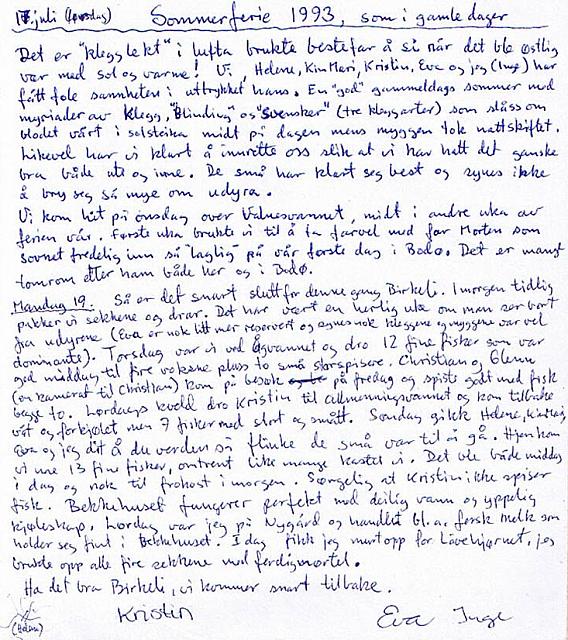 17. juli (lørsdag) Sommerferie 1993, som i gamle dager
Det er "kleggslekt" i lufta brukte bestefar å si når det ble østlig
vær med sol og varme! Vi, Helene, Kim Mari, Kristin, Eva og jeg (Inge) har
fått føle sannheten i uttrykket hans. En "god" gammeldags sommer med
myriader av klegg, "Blinding" og "Svensker" (tre kleggarter) som slåss om
blodet vårt i solsteika midt på dagen mens myggen tok nattskiftet.
Likevel har vi klart å innrette oss slik at vi har hatt det ganske
bra både ute og inne. De små har klart seg best og synes ikke
å bry seg så mye om udyra.
Vi kom hit på onsdag over Valnesvannet, midt i andre uka av
ferien vår. Første uka brukte vi til å ta farvel med far Morten som
sovnet fredelig inn så "laglig" på vår første dag i Bodø. Det er mangt
tomrom etter ham både her og i Bodø.
Mandag 19. Så er det snart slutt for denne gang Birkeli. I morgen tidlig
pakker vi sekkene og drar. Det har vært en herlig uke om man ser bort
fra udyrene (Eva er nok litt mer reservert og synes nok kleggene og myggene var vel
dominante). Torsdag var vi ved Ågvannet og dro 12 fine fisker som var
god middag til fire voksne pluss to små storspisere. Christian og Glenn
(en kamerat til Christian) kom på besøk på fredag og spiste godt med fisk
begge to. Lørdags kveld dro Kristin til allmenningsvannet og kom tilbake
våt og forkjølet men 7 fisker med stort og smått. Søndag gikk Helene, Kim Mari,
Eva og jeg dit å du verden så flinke de små var til å gå. Hjem kom
vi med 13 fine fisker, omtrent like mange kastet vi. Det ble både middag
i dag og nok til frokost i morgen. Sørgelig at Kristin ikke spiser
fisk. Bekkehuset fungerer perfekt med deilig vann og ypperlig
kjøleskap. Lørdag var jeg på Nygård og handlet bl.a. fersk melk som
holder seg fint i bekkehuset. I dag fikk jeg murt opp for Låvehjørnet, jeg
brukte opp alle fire sekkene med ferdigmørtel.
Ha det bra Birkeli, vi kommer snart tilbake.
(Helene) Kristin Eva Inge